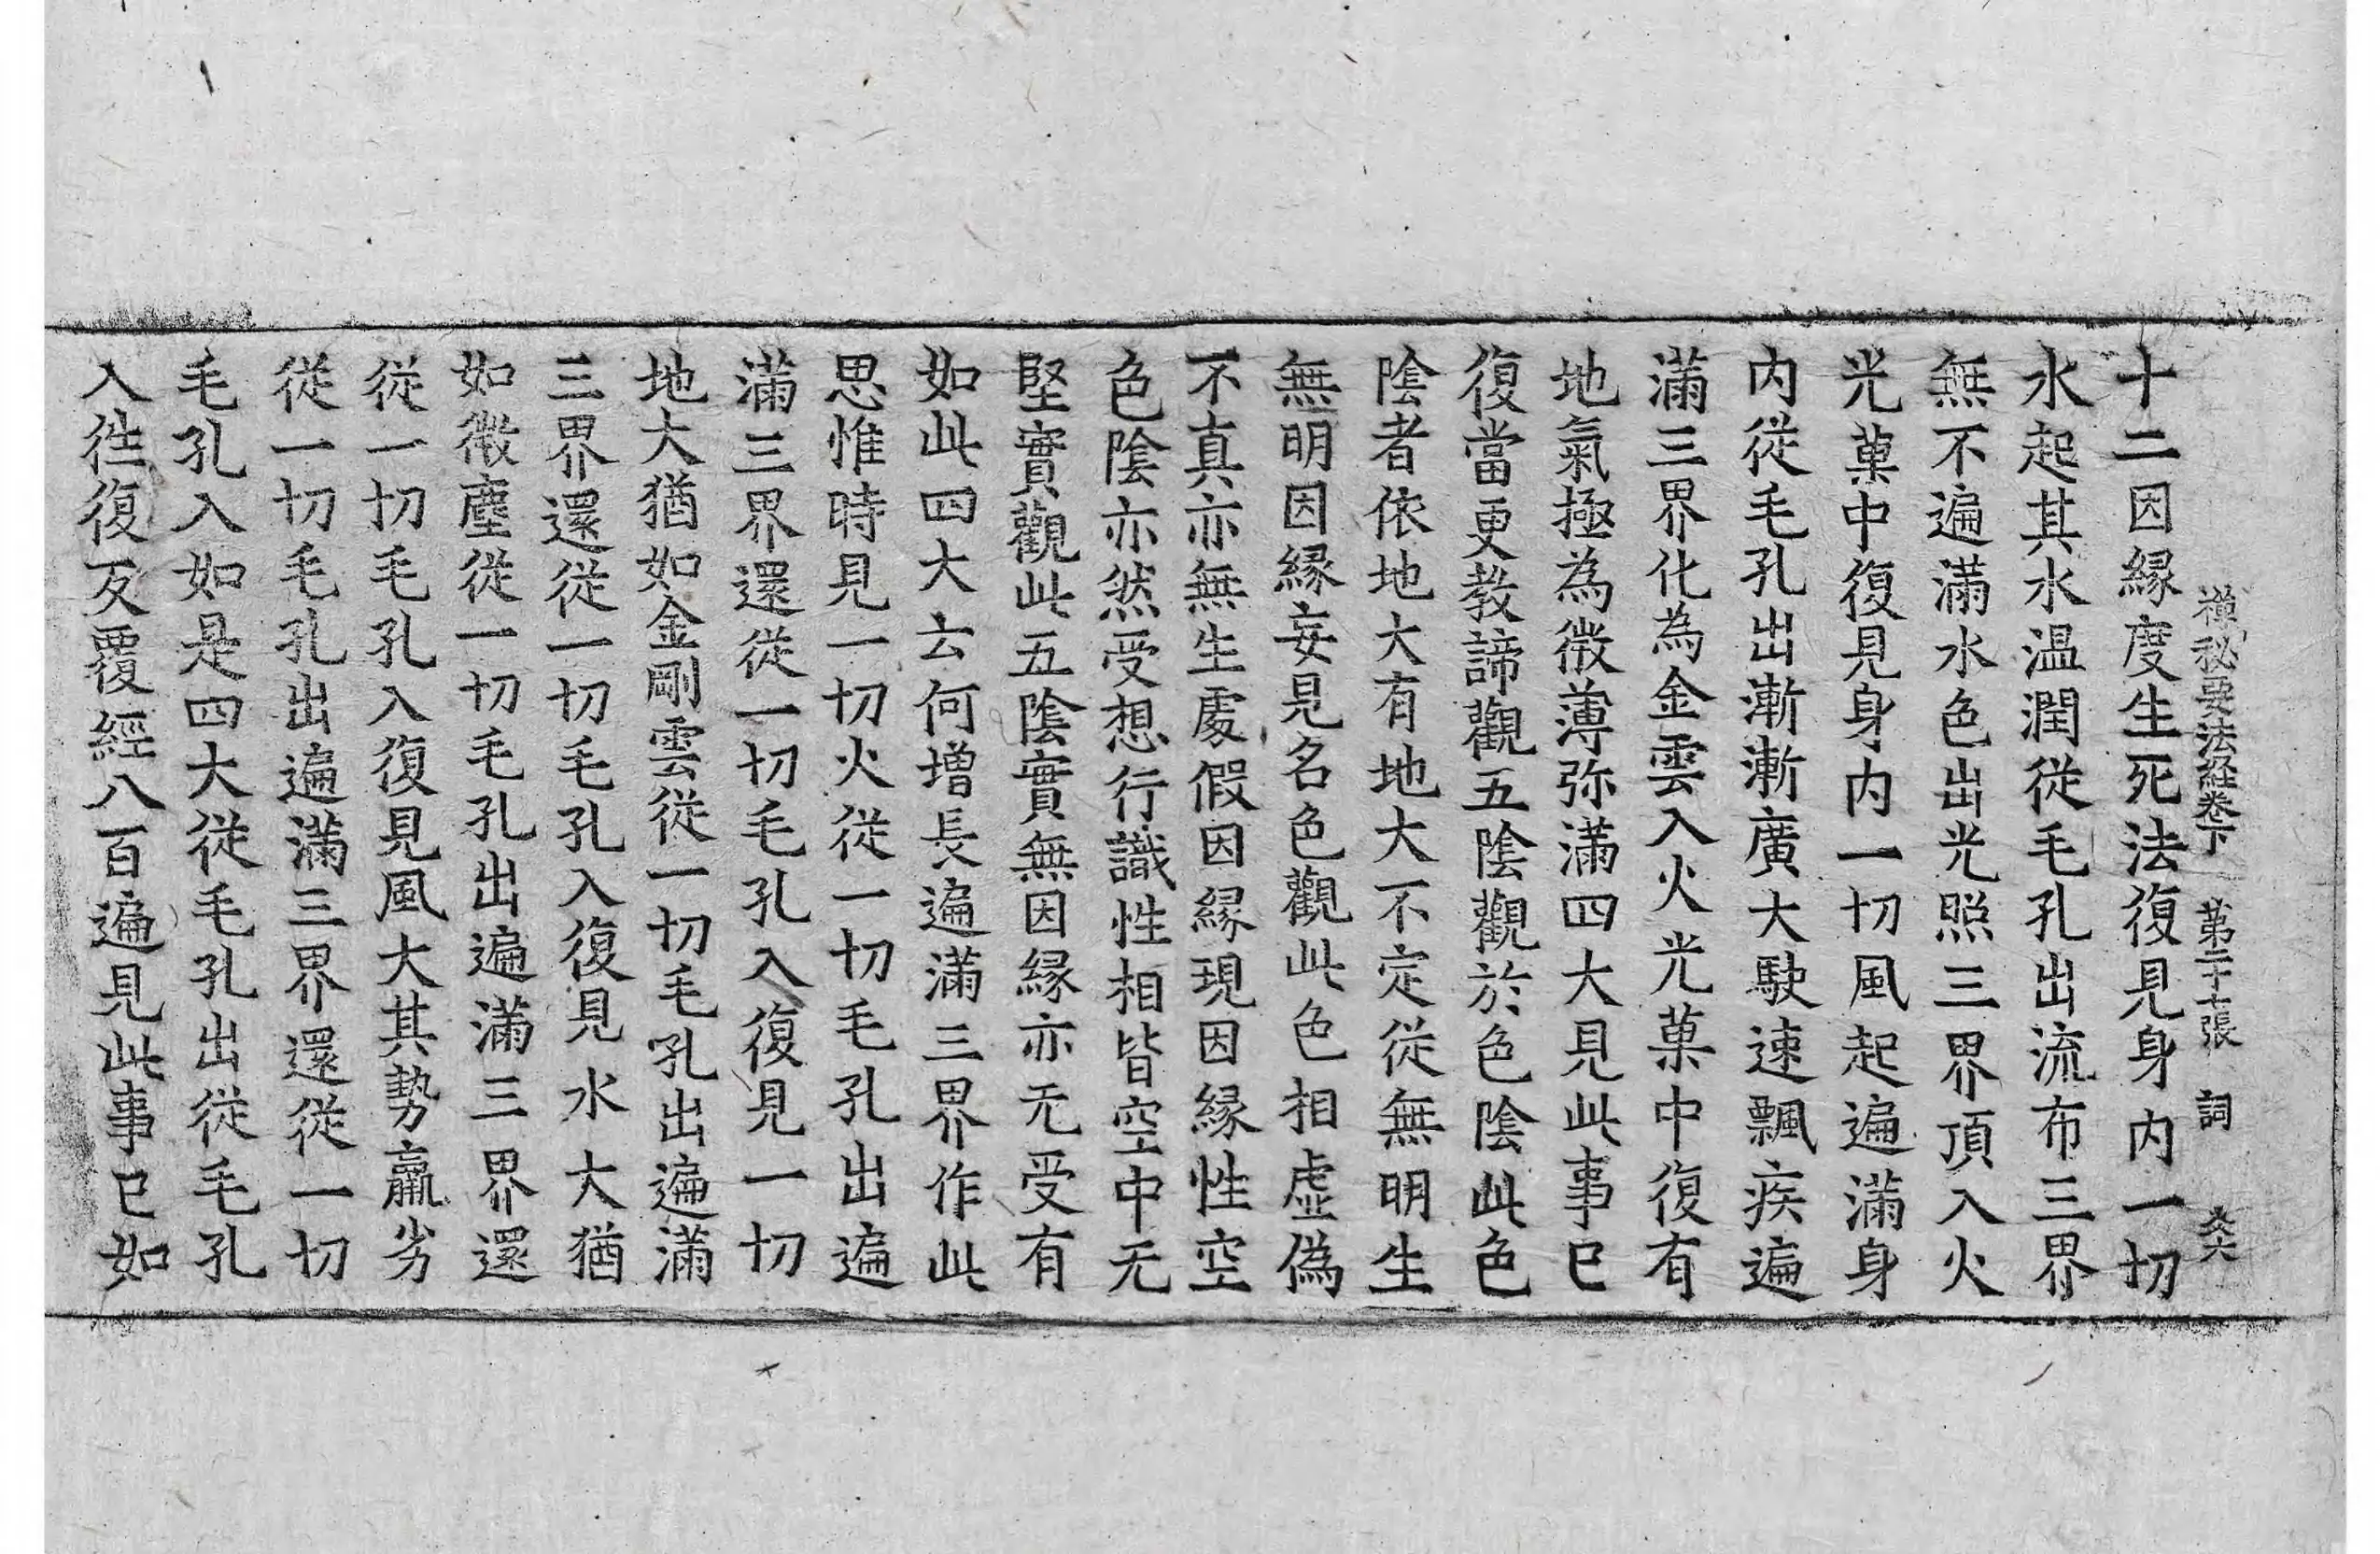 禪秘要法経卷下　第二十七張　詞
十二因縁度生死法復見身内一切
水起其水温潤從毛孔出流布三界
無不遍滿水色出光照三界頂入火
光菓中復見身内一切風起遍滿身
内從毛孔出漸漸廣大駛速飄疾遍
滿三界化為金雲入火光菓中復有
地氣極為微薄弥滿四大見此事已
復當更教諦觀五陰觀於色陰此色
陰者依地大有地大不定從無明生
無明因縁妄見名色觀此色相虛偽
不真亦無生處假因縁現因縁性空
色陰亦然受想行識性相皆空中无
堅實觀此五陰實無因縁亦无受有
如此四大云何增長遍滿三界作此
思惟時見一切火從一切毛孔出遍
滿三界還從一切毛孔入復見一切
地大猶如金剛雲從一切毛孔出遍滿
三界還從一切毛孔入復見水大猶
如微塵從一切毛孔出遍滿三界還
從一切毛孔入復見風大其勢羸劣
從一切毛孔出遍滿三界還從一切
毛孔入如是四大從毛孔出從毛孔
入往復反覆經八百遍見此事已如